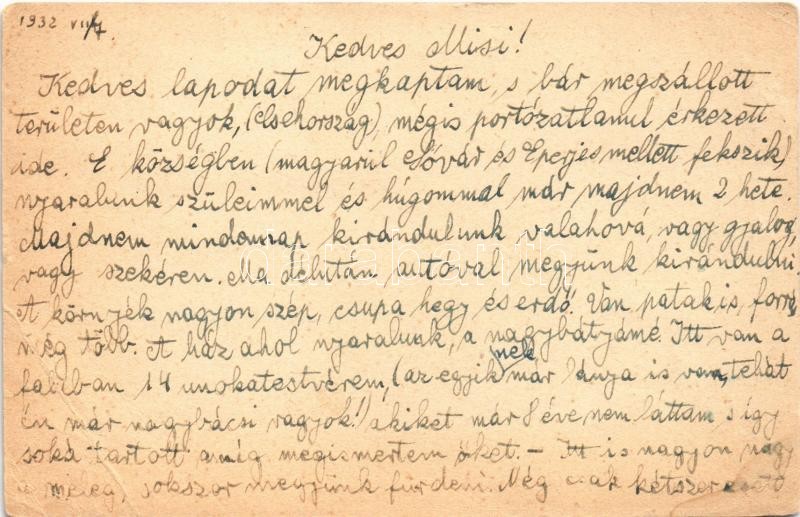 1932 VII/7.
Kedves Misi!
Kedves lapodat megkaptam, s bár megszállott
területen vagyok, (Csehország), mégis portózatlanul érkezett
ide. E községben (magyarul Sóvár és Eperjes mellett fekszik)
nyaralunk szüleimmel és húgommal már majdnem 2 hete.
Majdnem mindennap kirándulunk valahová, vagy gyalog,
vagy szekéren. Ma délután autóval megyünk kirándulni.
A környék nagyon szép, csupa hegy és erdő. Van patak is, forrás
még több. A ház ahol nyaralunk, a nagybátyámé. Itt van a
faluban 14 unokatestvérem, (az egyiknek már lánya is van, tehát
én már nagybácsi vagyok!) akiket már 8 éve nem láttam s így
soká tartott amíg megismertem őket. – Itt is nagyon nagy
a meleg, sokszor megyünk fürdeni. Még csak kétszer esett